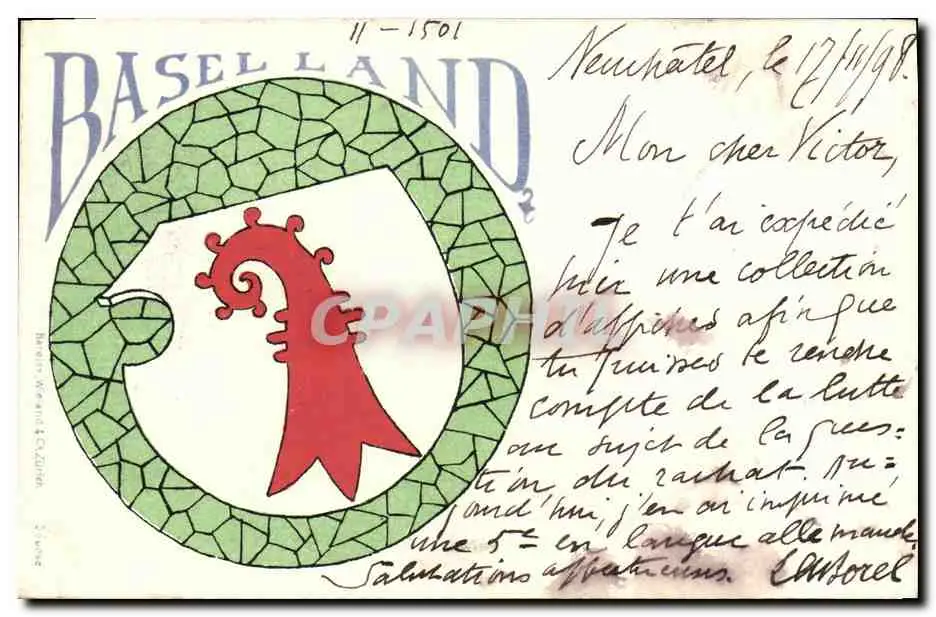 II - 1501
BASELLAND
Neuchâtel, le 17/II/98.
Mon cher Victor,
Je t'ai expédié
hier une collection
d'affiches afin que
tu puisses te rendre
compte de la lutte
au sujet de la ques=
tion du rachat. Au=
jourd'hui, j'en ai imprimé
une 5e en langue allemande.
Salutations affectueuses. Borel
CPAPHIL
Wieland & Co. Zürich